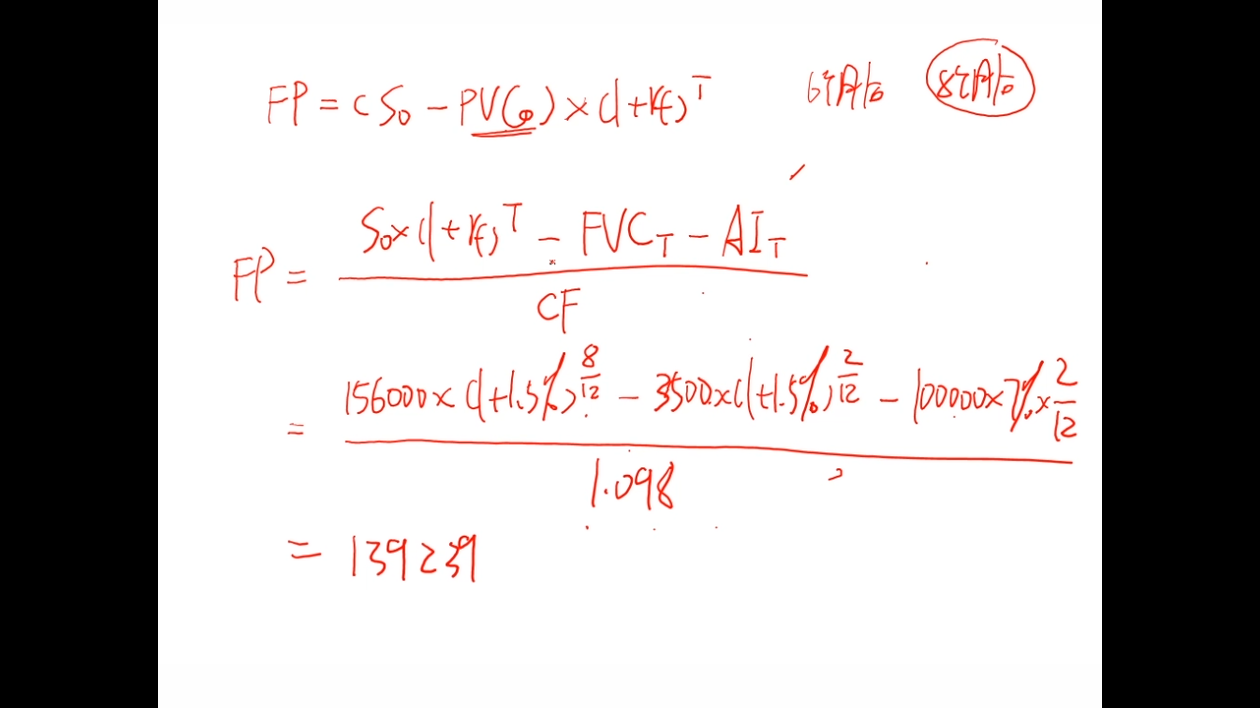 FP = (S₀ - PVC₀) × (1+rf)ᵀ 6个月后 8个月后
FP = (S₀×(1+rf)ᵀ - FVC_T - AI_T) / CF
= (156000×(1+1.5%)^(8/12) - 3500×(1+1.5%)^(2/12) - 100000×7%×2/12) / 1.098
= 139239